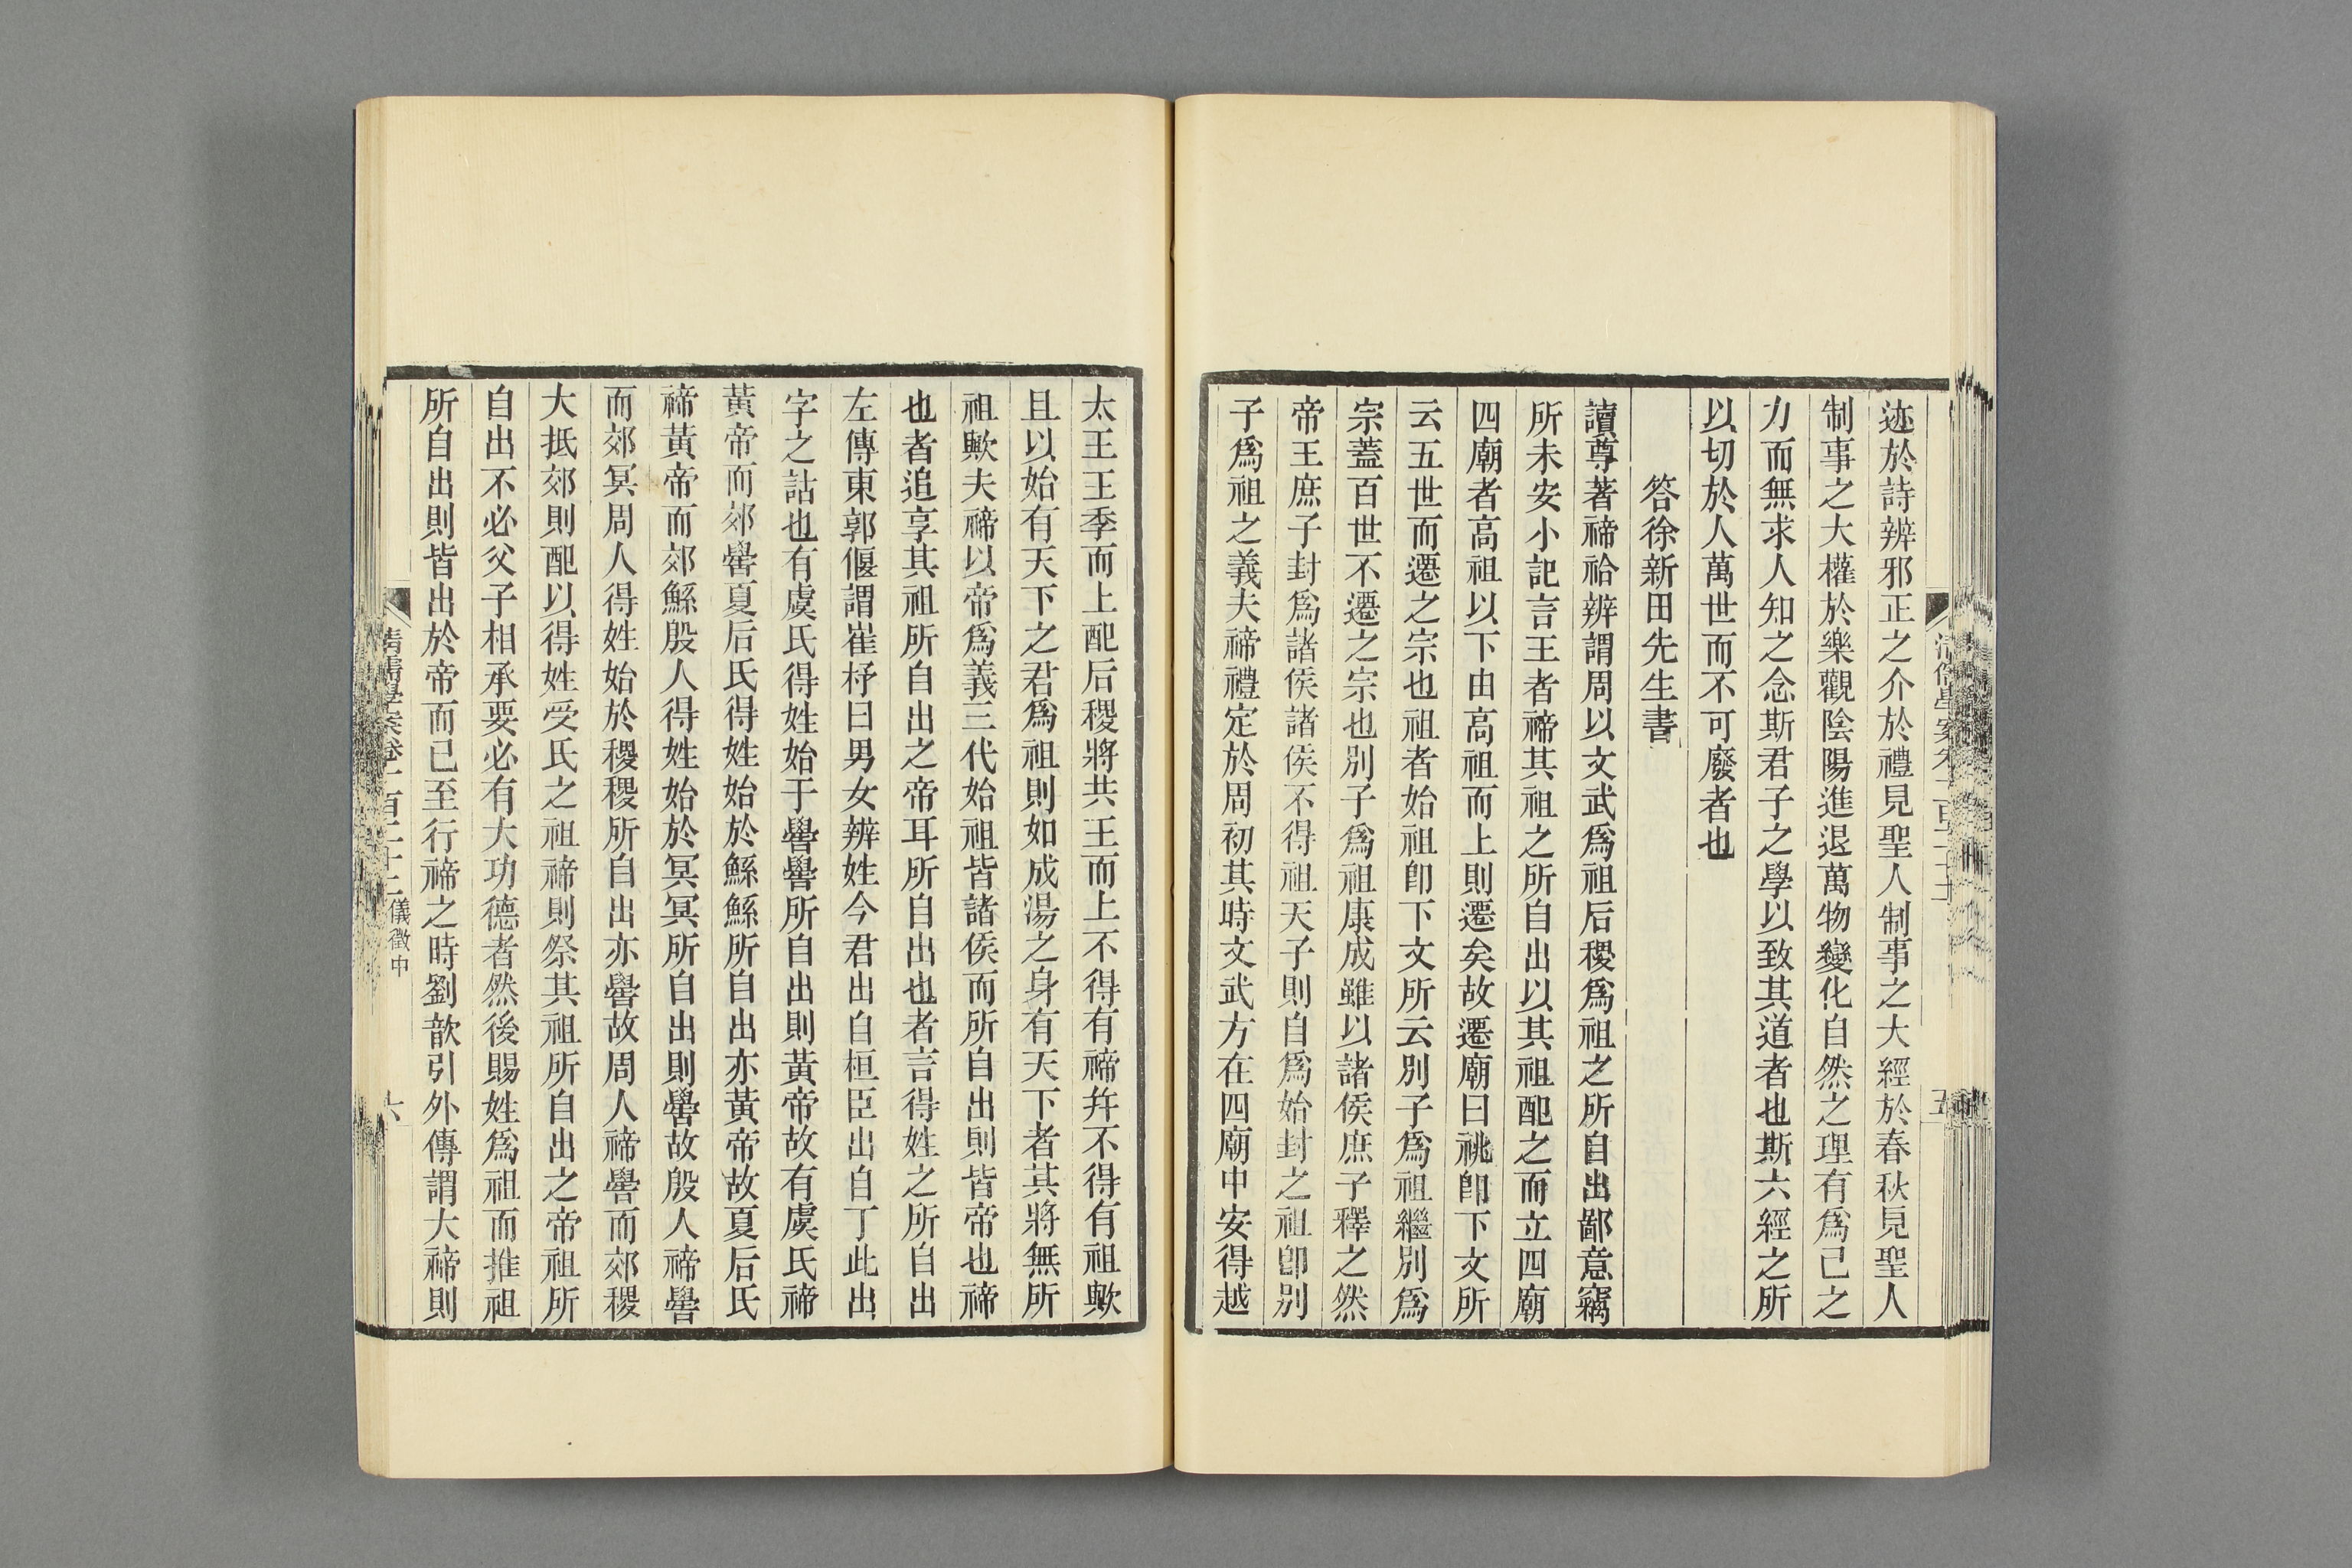 迹於詩辨邪正之介於禮見聖人制事之大經於春秋見聖人
制事之大權於樂觀陰陽進退萬物變化自然之理有爲己之
力而無求人知之念斯君子之學以致其道者也斯六經之所
以切於人萬世而不可廢者也
答徐新田先生書
讀尊著禘祫辨謂周以文武爲祖后稷爲祖之所自出鄙意竊
所未安小記言王者禘其祖之所自出以其祖配之而立四廟
四廟者高祖以下由高祖而上則遷矣故遷廟曰祧卽下文所
云五世而遷之宗也祖者始祖卽下文所云別子爲祖繼別爲
宗蓋百世不遷之宗也別子爲祖康成雖以諸侯庶子釋之然
帝王庶子封爲諸侯諸侯不得祖天子則自爲始封之祖卽別
子爲祖之義夫禘禮定於周初其時文武方在四廟中安得越
太王王季而上配后稷將共王而上不得有禘幷不得有祖歟
且以始有天下之君爲祖則如成湯之身有天下者其將無所
祖歟夫禘以帝爲義三代始祖皆諸侯而所自出則皆帝也禘
也者追享其祖所自出之帝耳所自出也者言得姓之所自出
左傳東郭偃謂崔杼曰男女辨姓今君出自桓臣出自丁此出
字之詁也有虞氏得姓始于嚳嚳所自出則黃帝故有虞氏禘
黃帝而郊嚳夏后氏得姓始於鯀鯀所自出亦黃帝故夏后氏
禘黃帝而郊鯀殷人得姓始於冥冥所自出則嚳故殷人禘嚳
而郊冥周人得姓始於稷稷所自出亦嚳故周人禘嚳而郊稷
大抵郊則配以得姓受氏之祖禘則祭其祖所自出之帝祖所
自出不必父子相承要必有大功德者然後賜姓爲祖而推祖
所自出則皆出於帝而已至行禘之時劉歆引外傳謂大禘則
清儒學案卷一百二十二儀徵中
六